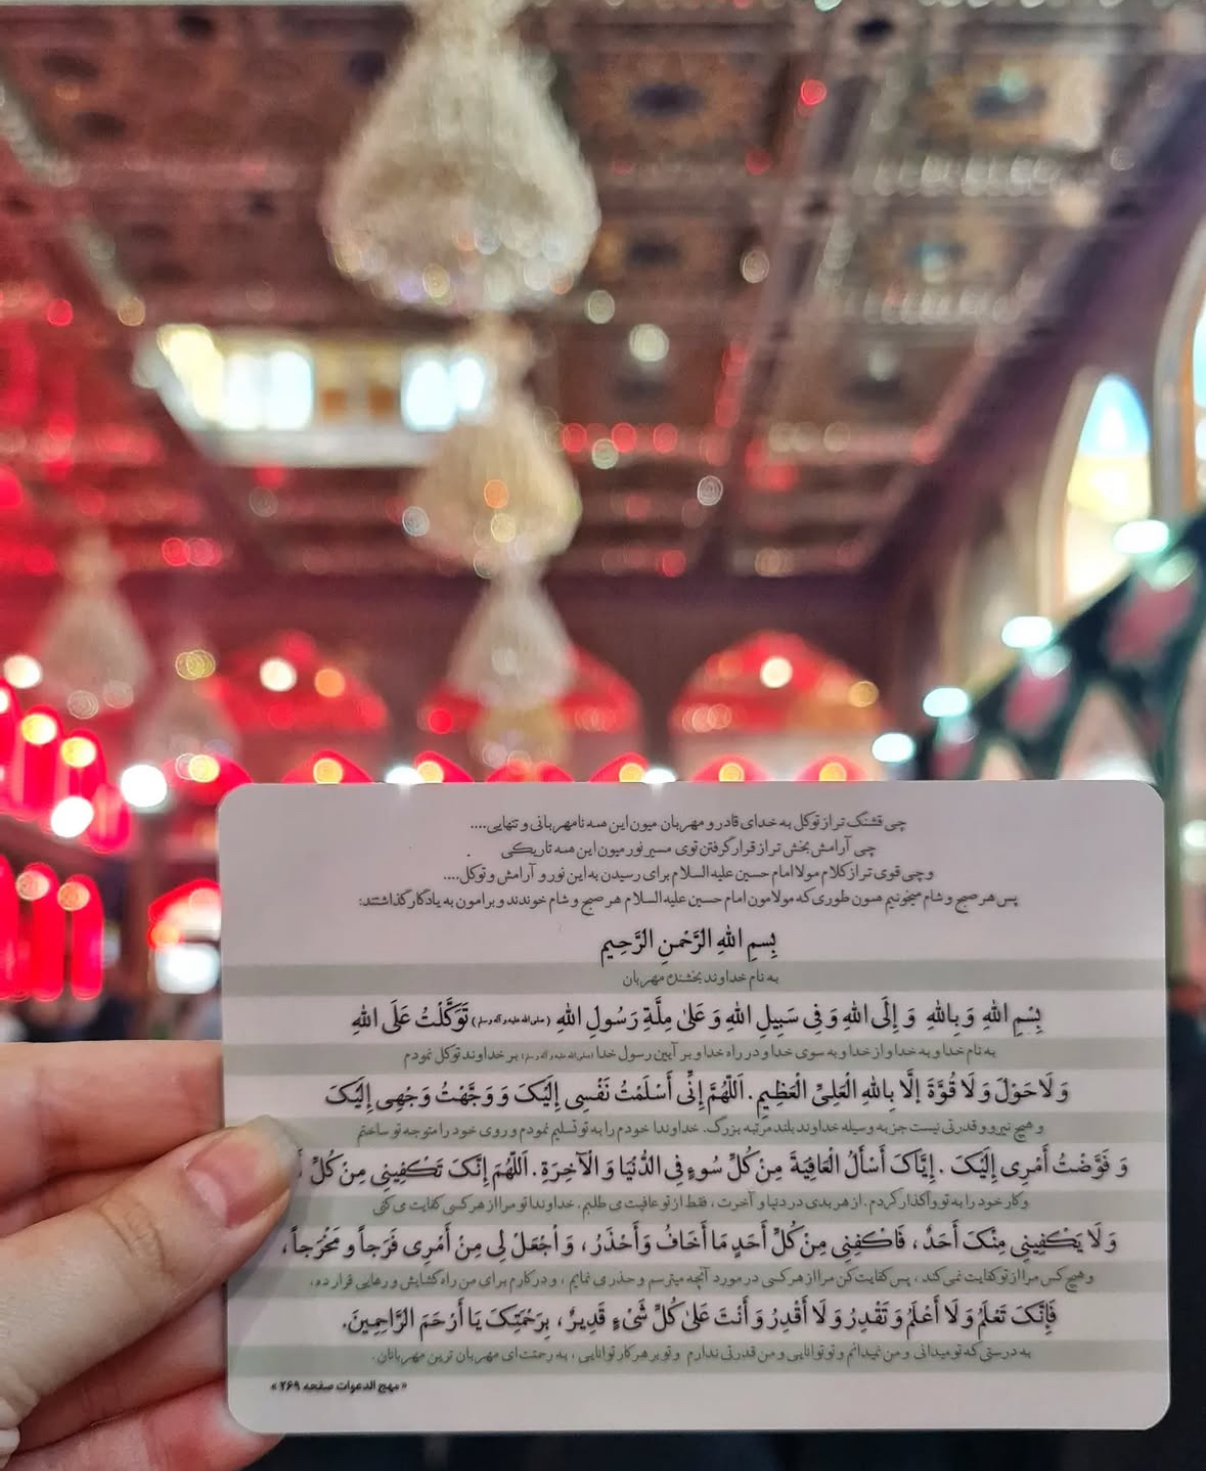 چی قشنگ تر از توکل به خدای قادر و مهربان میون این همه نامهربانی و تنهایی....
چی آرامش بخش تر از قرار گرفتن توی مسیر نور میون این همه تاریکی
و چی قوی تر از کلام مولا امام حسین علیه السلام برای رسیدن به این نور و آرامش و توکل....
پس هر صبح و شام میخونیم همون طوری که مولامون امام حسین علیه السلام هر صبح و شام خوندند و برامون به یادگار گذاشتند:
بِسمِ اللهِ الرَّحْمنِ الرَّحِیمِ
به نام خداوند بخشنده مهربان
بِسْمِ اللهِ وَ بِاللهِ وَ إِلَی اللهِ وَ فِی سَبِیلِ اللهِ وَ عَلیٰ مِلَّةِ رَسُولِ اللهِ (صلی الله علیه و آله و سلم) تَوَکَّلْتُ عَلَی اللهِ
به نام خدا و به خدا و از خدا و به سوی خدا و در راه خدا و بر آیین رسول خدا (صلی الله علیه و آله و سلم) بر خداوند توکل نمودم
وَ لَا حَوْلَ وَ لَا قُوَّةَ إلَّا بِاللهِ الْعَلِیِّ الْعَظِیمِ. اَللّٰهُمَّ إِنِّی أَسْلَمْتُ نَفْسِی إِلَیْکَ وَ وَجَّهْتُ وَجْهِی إِلَیْکَ
و هیچ نیرو و قدرتی نیست جز به وسیله خداوند بلند مرتبه بزرگ. خداوندا خودم را به تو تسلیم نمودم و روی خود را متوجه تو ساختم
وَ فَوَّضْتُ أَمْرِی إِلَیْکَ. إِیَّاکَ أَسْأَلُ الْعَافِیَةَ مِنْ کُلِّ سُوءٍ فِی الدُّنْیَا وَ الْآخِرَةِ. اَللّٰهُمَ إِنَّکَ تَکْفِینِی مِنْ کُلِّ
و کار خود را به تو واگذار کردم. از هر بدی در دنیا و آخرت، فقط از تو عافیت می طلبم، خداوندا تو مرا از هر کسی کفایت می کنی
وَ لَا یَکْفِینِی مِنْکَ أَحَدٌ، فَاکْفِنِی مِنْ کُلِّ أَحَدٍ مَا أَخَافُ وَ أَحْذَرُ، وَ اْجْعَلْ لِی مِنْ أَمْرِی فَرَجاً و مَخْرَجاً،
و هیچ کس مرا از تو کفایت نمی کند، پس کفایت کن مرا از هر کسی در مورد آنچه میترسم و حذر می نمایم، و در کارم برای من راه گشایش و رهایی قرار ده،
فَإِنَّکَ تَعْلَمُ وَ لَا أَعْلَمُ وَ تَقْدِرُ وَ لَا أَقْدِرُ وَ أَنْتَ عَلیٰ کُلِّ شَیْءٍ قَدِیرٌ، بِرَحْمَتِکَ یَا أَرْحَمَ الرَّاحِمِینَ.
به درستی که تو میدانی و من نمیدانم و تو توانایی و من قدرتی ندارم و تو بر هر کار توانایی، به رحمتت ای مهربان ترین مهربانان.
« مهج الدعوات صفحه ۲۶۹ »